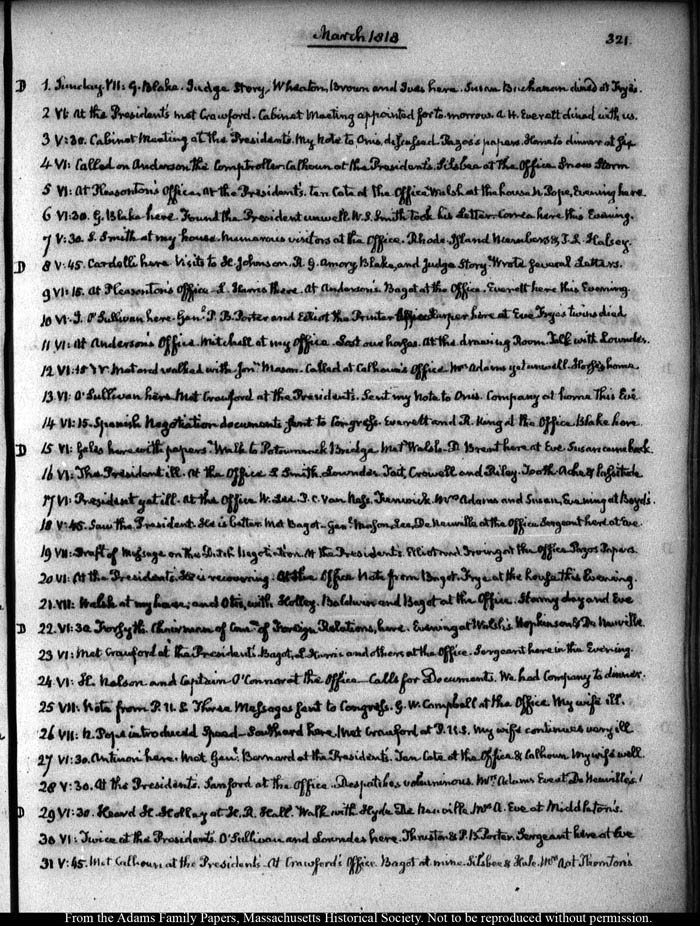 March 1818
321.
D 1. Sunday. VII: G. Blake. Judge Story, Wheaton, Brown and Ives here. Susan Buchanan dined at Frye's.
2 VI: At the President's met Crawford. Cabinet Meeting appointed for to-morrow. A. H. Everett dined with us.
3 V:30. Cabinet Meeting at the President's. My Note to Onis discussed. Pazos's papers. Home to dinner at six
4 VI: Called on Anderson the Comptroller. Calhoun at the President's. Silsbee at the Office. Snow Storm
5 VI: At Pleasonton's Office. At the President's. ten Cate at the Office. Walsh at the house N. Pope, Evening here.
6 VI:30. G. Blake here. Found the President unwell. W. S. Smith took his Letter. Correa here this Evening.
7 V:30. S. Smith at my house. Numerous visitors at the Office. Rhode-Island Members &c, J. L. Halsey.
D 8 V:45. Cardelli here. Visits to H. Johnson. R. G. Amory, Blake, and Judge Story. Wrote several Letters.
9 VI:15. At Pleasonton's Office. L. Harris there. At Anderson's. Bagot at the Office. Everett here this Evening.
10 VI: J. O'Sullivan here. Genl. P. B. Porter and Elliot the Printer at here at Eve Frye's twins died
11 VI: At Anderson's Office. Mitchell at my Office. Lost our horses. At the drawing Room. Talk with Lowndes.
12 VI:15 Met and walked with Jonn. Mason. Called at Calhoun's Office. Mrs Adams yet unwell. Horses home
13 VI: O'Sullivan here. Met Crawford at the President's. Sent my Note to Onis. Company at home this Eve
14 VI:15. Spanish Negotiation documents sent to Congress. Everett and R. King at the Office. Blake here.
D 15 VI: Gales here with papers. Walk to Potowmack Bridge. Met Walsh. D. Brent here at Eve. Susan came back.
16 VI: The President ill. At the Office S. Smith, Lowndes, Tait, Crowell and Riley. Tooth Ache & Lassitude
17 VI: President yet ill. At the Office W. Lee. J. C. Van Ness. Fenwick. Mrs Adams and Susan, Evening at Boyd's.
18 V:45. Saw the President. He is better. Met Bagot. Genl. Mason, Lee, De Neuville at the Office. Sergeant here at Eve.
19 VII: Draft of Message on the Dutch Negotiation. At the President's. Elliot and Irving at the Office. Pazos Papers.
20 VI: At the President's. He is recovering. At the Office Note from Bagot. Frye at the house this Evening.
21 VII: Walsh at my house; and Otis, with Holley. Baldwin and Bagot at the Office. Stormy day and Eve
D 22. VI:30. Forsyth. Chairman of Comee. of Foreign Relations, here. Evening at Walsh's. Hopkinson & De Neuville.
23 VI: Met Crawford at the President's. Bagot, L. Harris and others at the Office. Sergeant here in the Evening.
24 VI: H. Nelson and Captain O'Connor at the Office. Calls for Documents. We had Company to dinner.
25 VII: Note from P.U.S. Three Messages sent to Congress. G. W. Campbell at the Office. My wife ill.
26 VII: N. Pope introduced Speed. Southard here. Met Crawford at P.U.S. My wife continues very ill
27 VI:30. Antinori here. Met Genl. Bernard at the President's. Ten Cate at the Office & Calhoun. My wife well.
28 V:30. At the President's. Sanford at the Office. Despatches voluminous. Mrs. Adams Eve at De Neuville's.
D 29 VI:30. Heard H. Holley at H. R. Hall. Walk with Hyde De Neuville. Mrs A. Eve at Middleton's.
30 VI: Twice at the President's. O'Sullivan and Lowndes here. Thruston & P. B. Porter. Sergeant here at Eve
31 V:45. Met Calhoun at the President's. At Crawford's Office. Bagot at mine. Silsbee & Hale. Mrs A at Thornton's
From the Adams Family Papers, Massachusetts Historical Society. Not to be reproduced without permission.